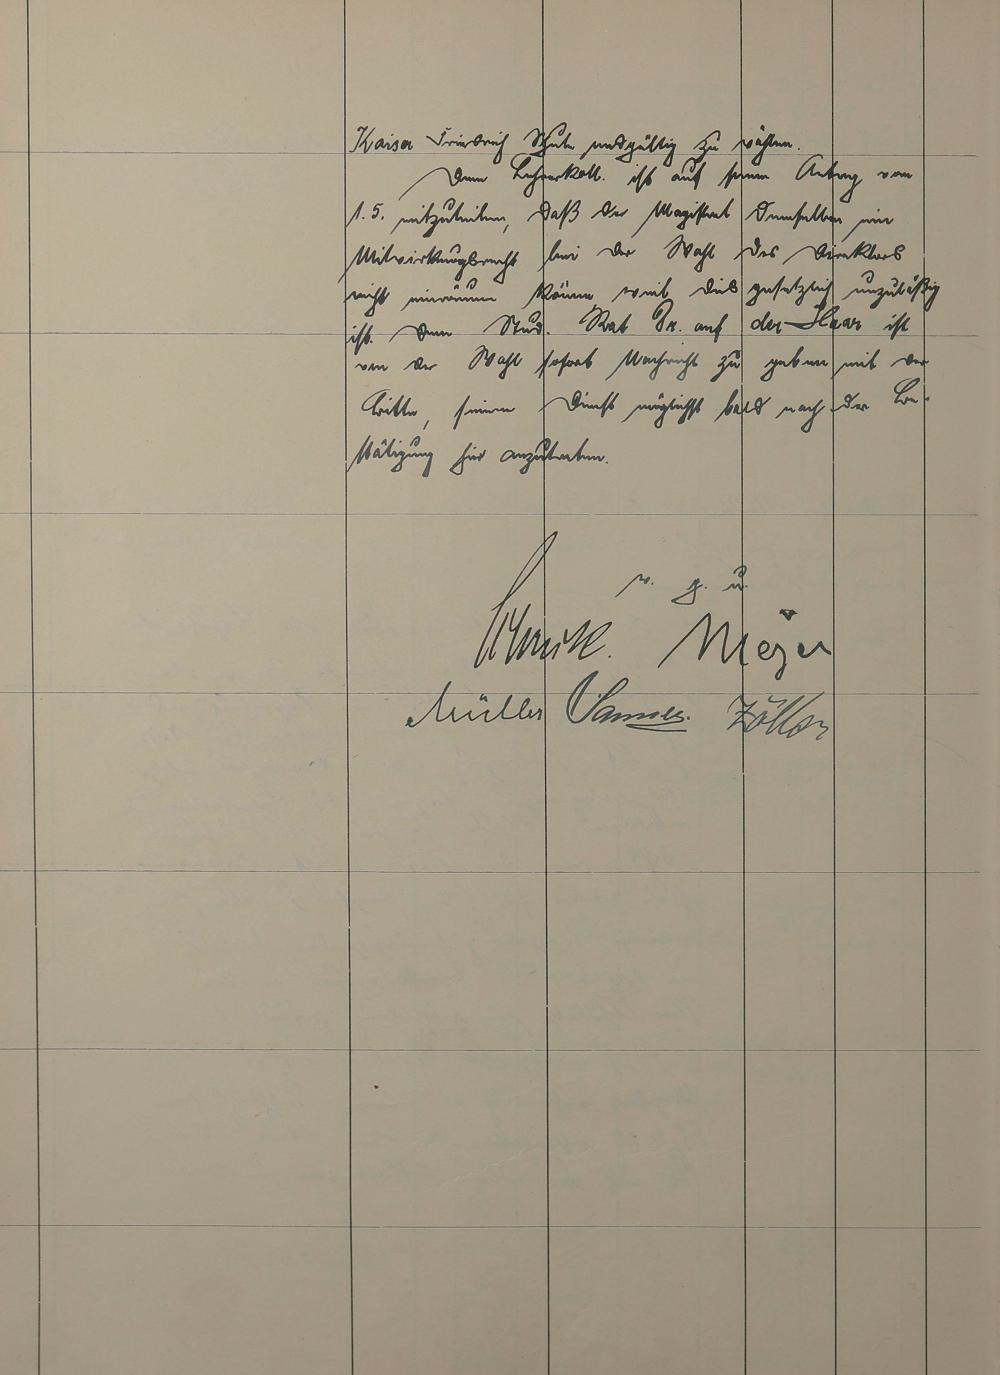 Kaiser Friedrich Schule endgültig zu wählen.
Dem Lehrerkoll. ist auf seinen Antrag vom
1.5. mitzuteilen, daß der Magistrat demselben ein
Mitwirkungsrecht bei der Wahl des Direktors
nicht einräumen könne, weil dies gesetzlich unzuläßig
ist. Dem Stud. Rat Dr. auf der Haar ist
von der Wahl sofort Nachricht zu geben mit der
Bitte, seinen Dienst möglichst bald nach der Be-
stätigung hier anzutreten.
v. g. u.
Meyer
Müller Zöller